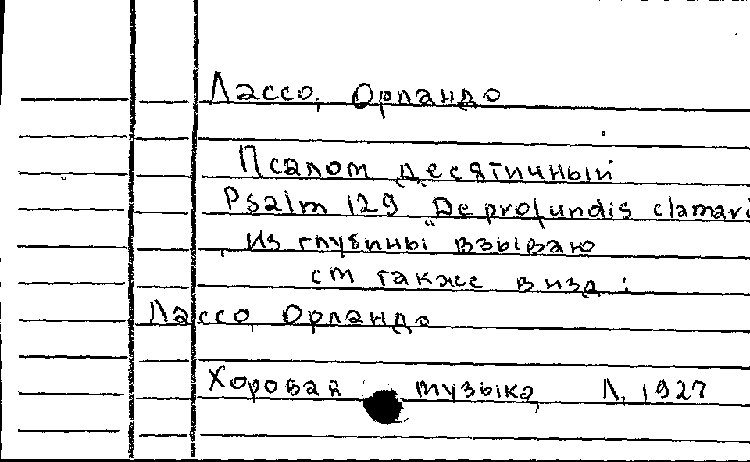 Лассо, Орландо
Псалом десятичный
Psalm 129 "De profundis clamavi
Из глубины взываю
см также в изд:
Лассо Орландо
Хоровая музыка Л, 1927